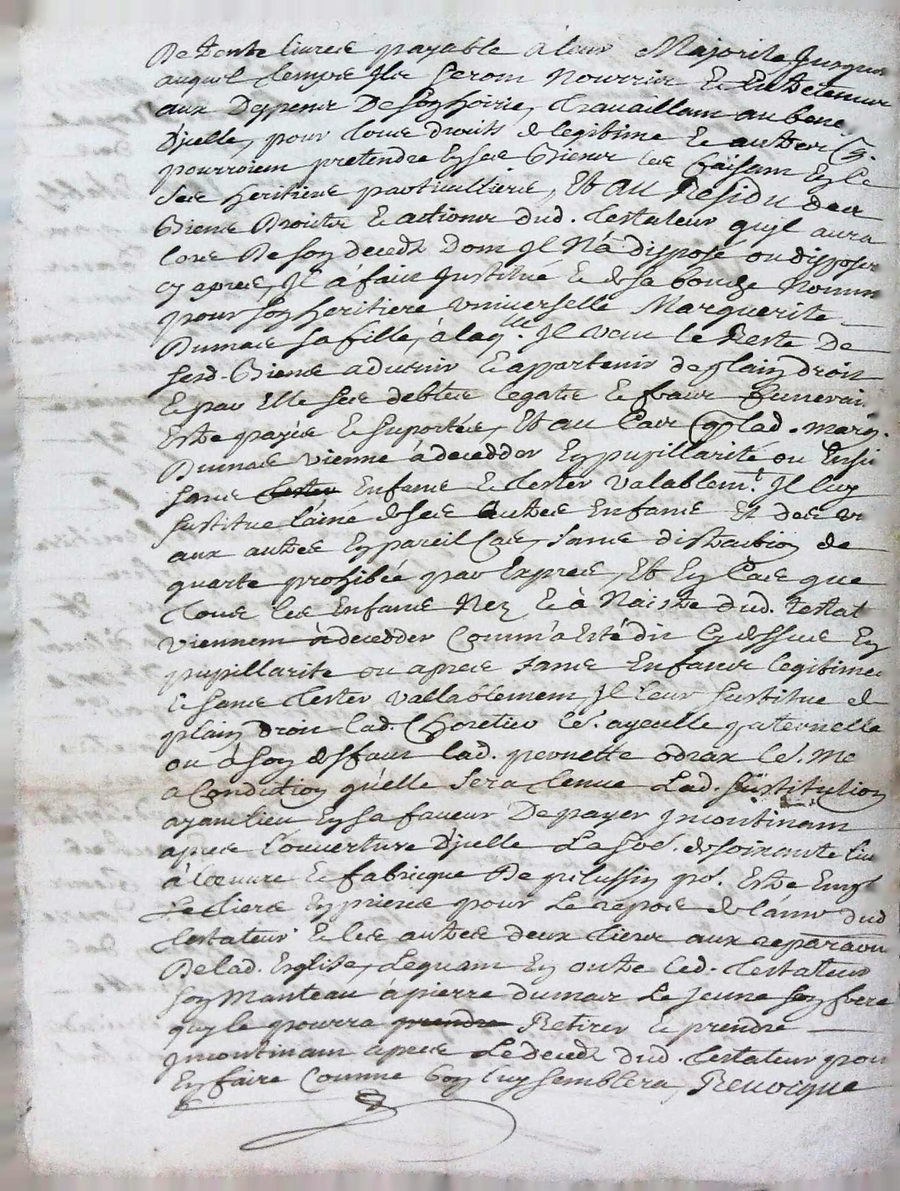 De trente livres payable à leur Majorité Jusques
auquel temps Ils seront Nourris Et Entretenus
aux Depens De son hoirie, travaillant au bene
D'jcelle, pour tous droits de legitime Et autres
pourroient pretendre En ses Biens les faisant En ce
ses heritiers particulliers, Et au Residu des
Biens Droits Et actions dud. testateur qujl aura
lors De son decedz dont Jl N'a disposé ou disposer
cy apres, Jl à fait Justitué Et de sa bouche Nommé
pour son heritiere Vniverselle Marguerite
Dumas sa fille, à laqlle. Jl veut le Reste De
sesd. Biens advenir Et appartenir de plain droit
Et par Elle ses debtes legats Et fraix funerai
Estre payés Et suportés, Et au Cas que lad. marg.
Dumas vienne à decedder En pupillarité ou Ensui
sans tester Enfans Et tester valablemt. Jl luy
sustitue l'ainé de ses autres Enfans Et des vns
aux autres En pareil Cas, sans distraction de
quarte prohibée par Exprés, Et En Cas que
tous les Enfans Nez Et à Naistre dud. testat
viennent à decedder Comm'a Esté dit Cy dessus En
pupillarité ou apres sans Enfans legitimes
Et sans tester vallablement, Jl leur sustitue de
plain droit lad. Charetier lr. ayeulle paternelle
ou à son deffaut lad. pernette odrax lr. me
a Condition qu'elle sera tenue Lad. sustitution
ayant lieu En sa faveur De payer Jncontinant
apres l'ouverture D'jcelle La soe. de soixante liv
à l'oeuvre Et fabricque De pelussin pr. Estre Empl
Le tiers En prieres pour Le repos de l'ame dud
testateur Et les autres deux tiers aux reparaons
De lad. Esglise, Leguant En outre led. testateur
son Manteau à pierre dumas Le jeune son frere
quy le pourra prendre Retirer Et prendre
Jncontinant apres Le decedz dud. testateur pour
En faire Comme bon luy semblera, Revocque